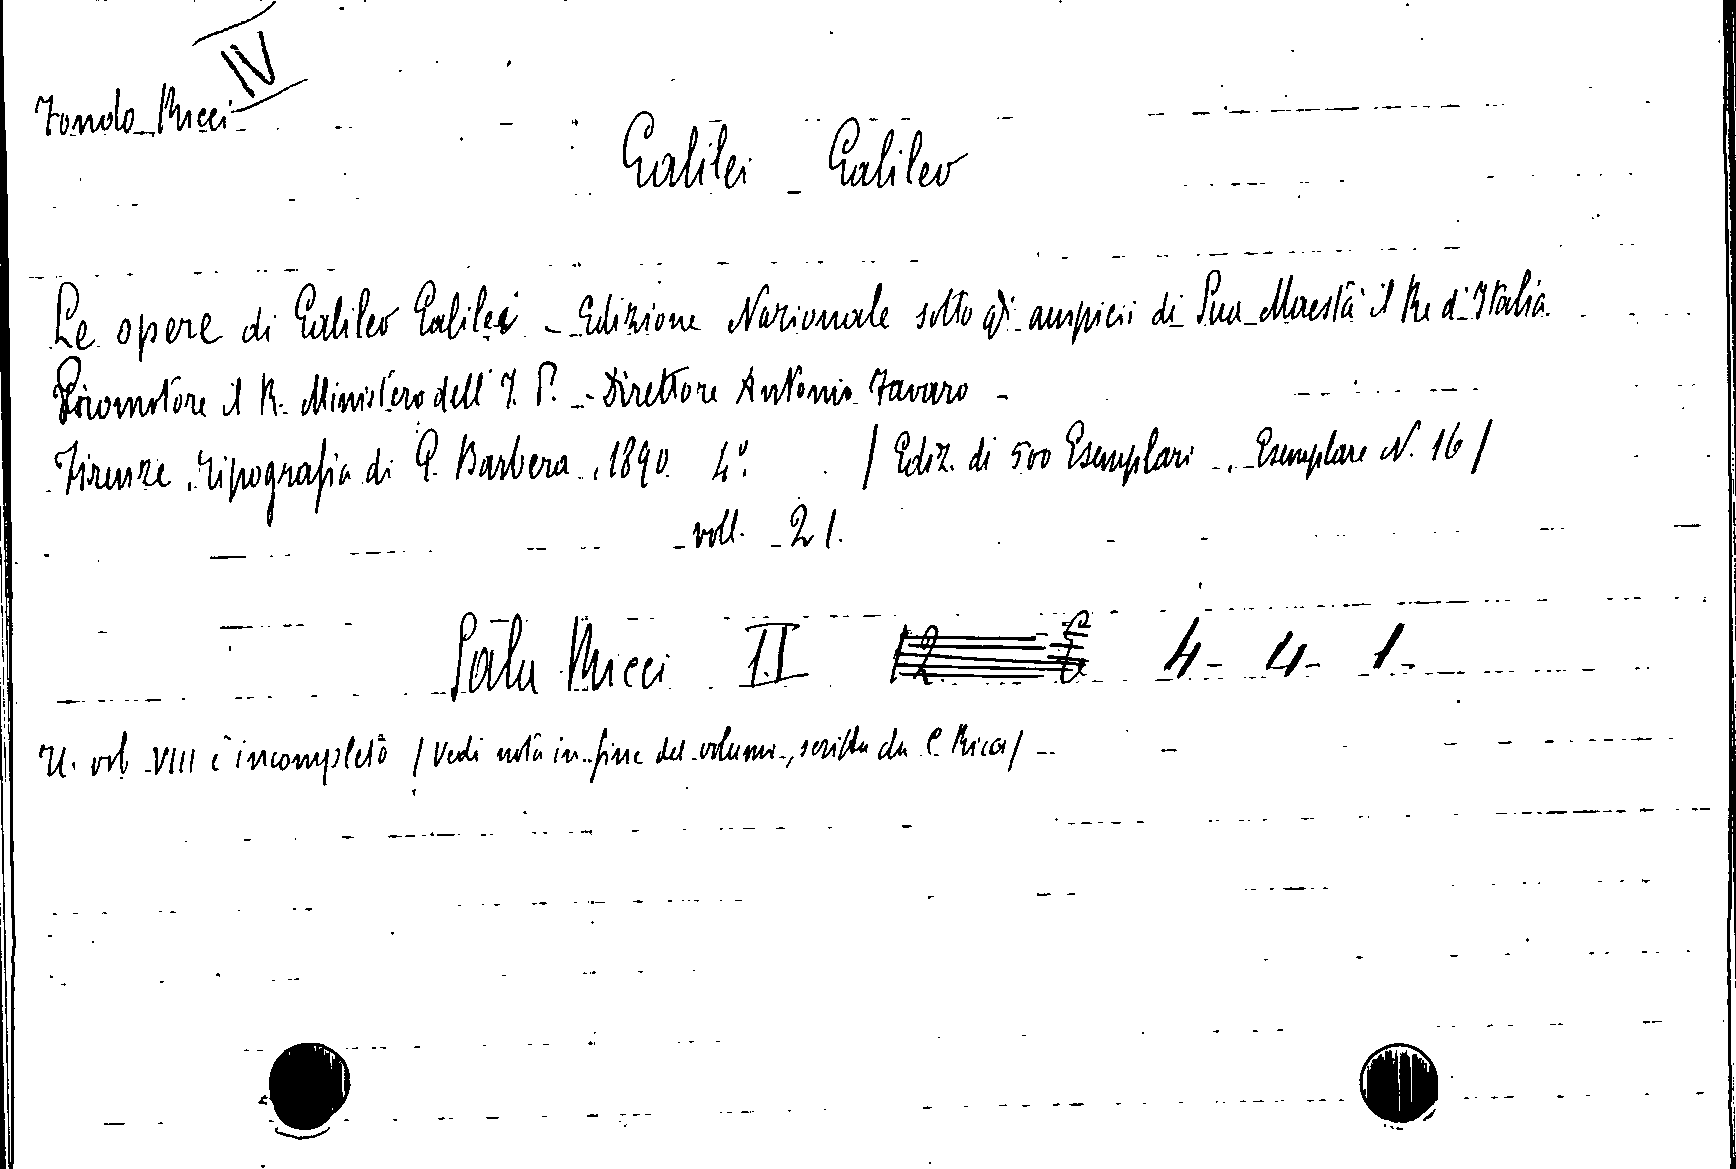 IV
Fondo Ricci
Galilei - Galileo
Le opere di Galileo Galilei - Edizione Nazionale sotto gli auspicii di Sua Maestà il Re d'Italia.
Promotore il R. Ministero dell'I. P. - Direttore Antonio Favaro -
Firenze, Tipografia di G. Barbera, 1890. 4º. / Ediz. di 500 Esemplari - Esemplare N. 16 /
voll. 21.
Sala Ricci II 4 - 4 - 1 -
Il vol VIII è incompleto / Vedi nota in fine del volume, scritta da C. Ricci / -